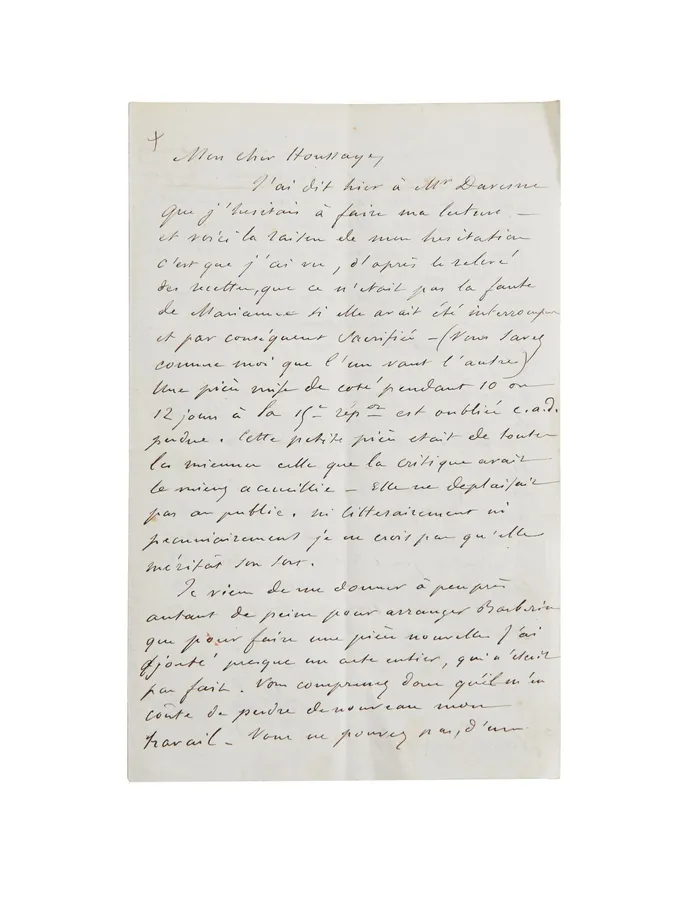 Mon cher Houssaye,
J'ai dit hier à Mr Davesne
que j'hesitais à faire ma lecture —
et voici la raison de mon hesitation
c'est que j'ai vu, d'après le relevé
des recettes, que ce n'etait pas la faute
de Marianne si elle avait été interrompue
et par conséquent sacrifiée — (Vous savez
comme moi que l'un vaut l'autre)
Une pièce mise de coté pendant 10 ou
12 jours à la 15e repon est oubliée c.a.d.
perdue. Cette petite pièce etait de toutes
les miennes celle que la critique avait
le mieux accueillie — Elle ne deplaisait
pas au public. ni litterairement ni
pecuniairement je ne crois pas qu'elle
méritât son sort.
Je viens de me donner à peu près
autant de peine pour arranger Barberine
que pour faire une pièce nouvelle J'ai
ajouté presque un acte entier, qui n'était
pas fait. Vous comprenez donc qu'il m'en
coûte de perdre de nouveau mon
travail — Vous ne pouvez pas, d'une